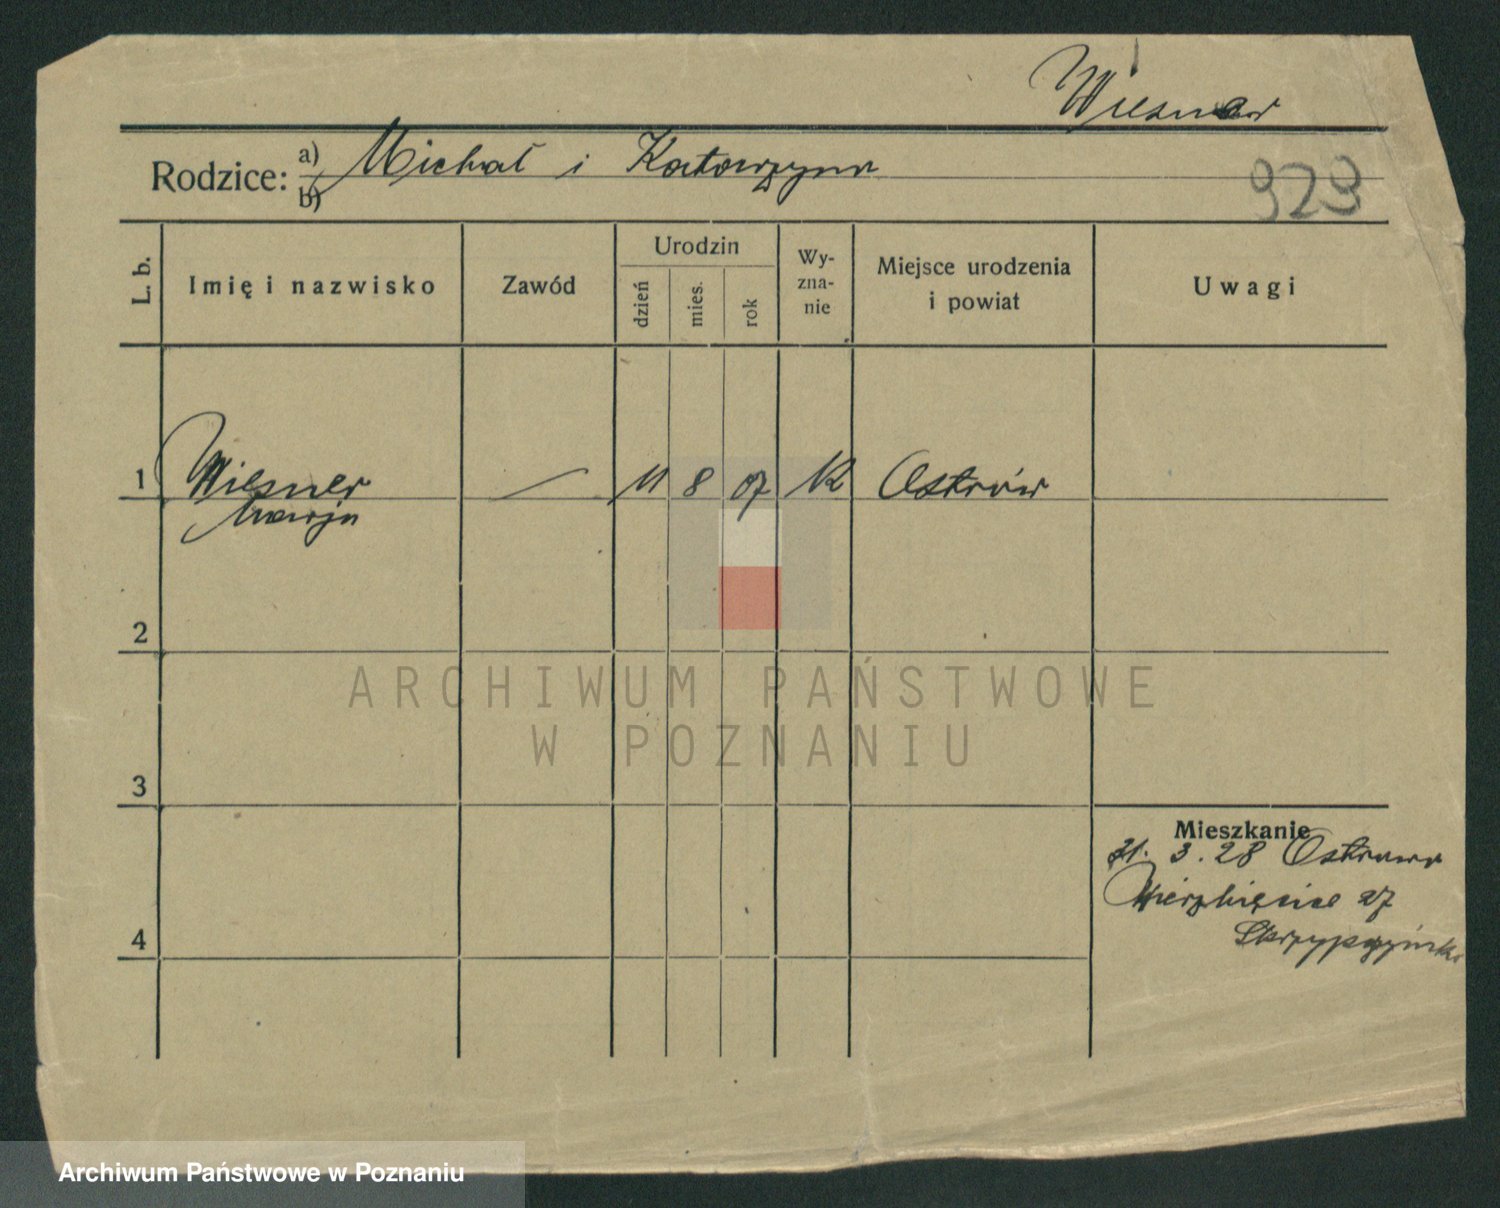 Wiesner
Rodzice: a) Michał i Katarzyna
b)
929
L. b. Imię i nazwisko Zawód Urodzin dzień mies. rok Wy-zna-nie Miejsce urodzenia i powiat Uwagi
1 Wiesner — 11 8 07 K Ostrów
Marja
2
ARCHIWUM PAŃSTWOWE
W POZNANIU
3
Mieszkanie
31. 3. 28 Ostrowa
Wierzbięcice 27
4
Archiwum Państwowe w Poznaniu